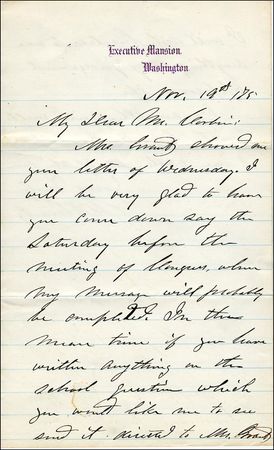 Executive Mansion.
Washington.
Nov. 19th /75
My Dear Mr. Corbin:
Mrs. Grant showed me
your letter of Wednesday. I
will be very glad to have
you come down say the
Saturday before the
meeting of Congress, when
my message will probably
be completed. In the
mean time if you have
written anything on the
school question which
you would like me to see
send it directed to Mrs. Grant